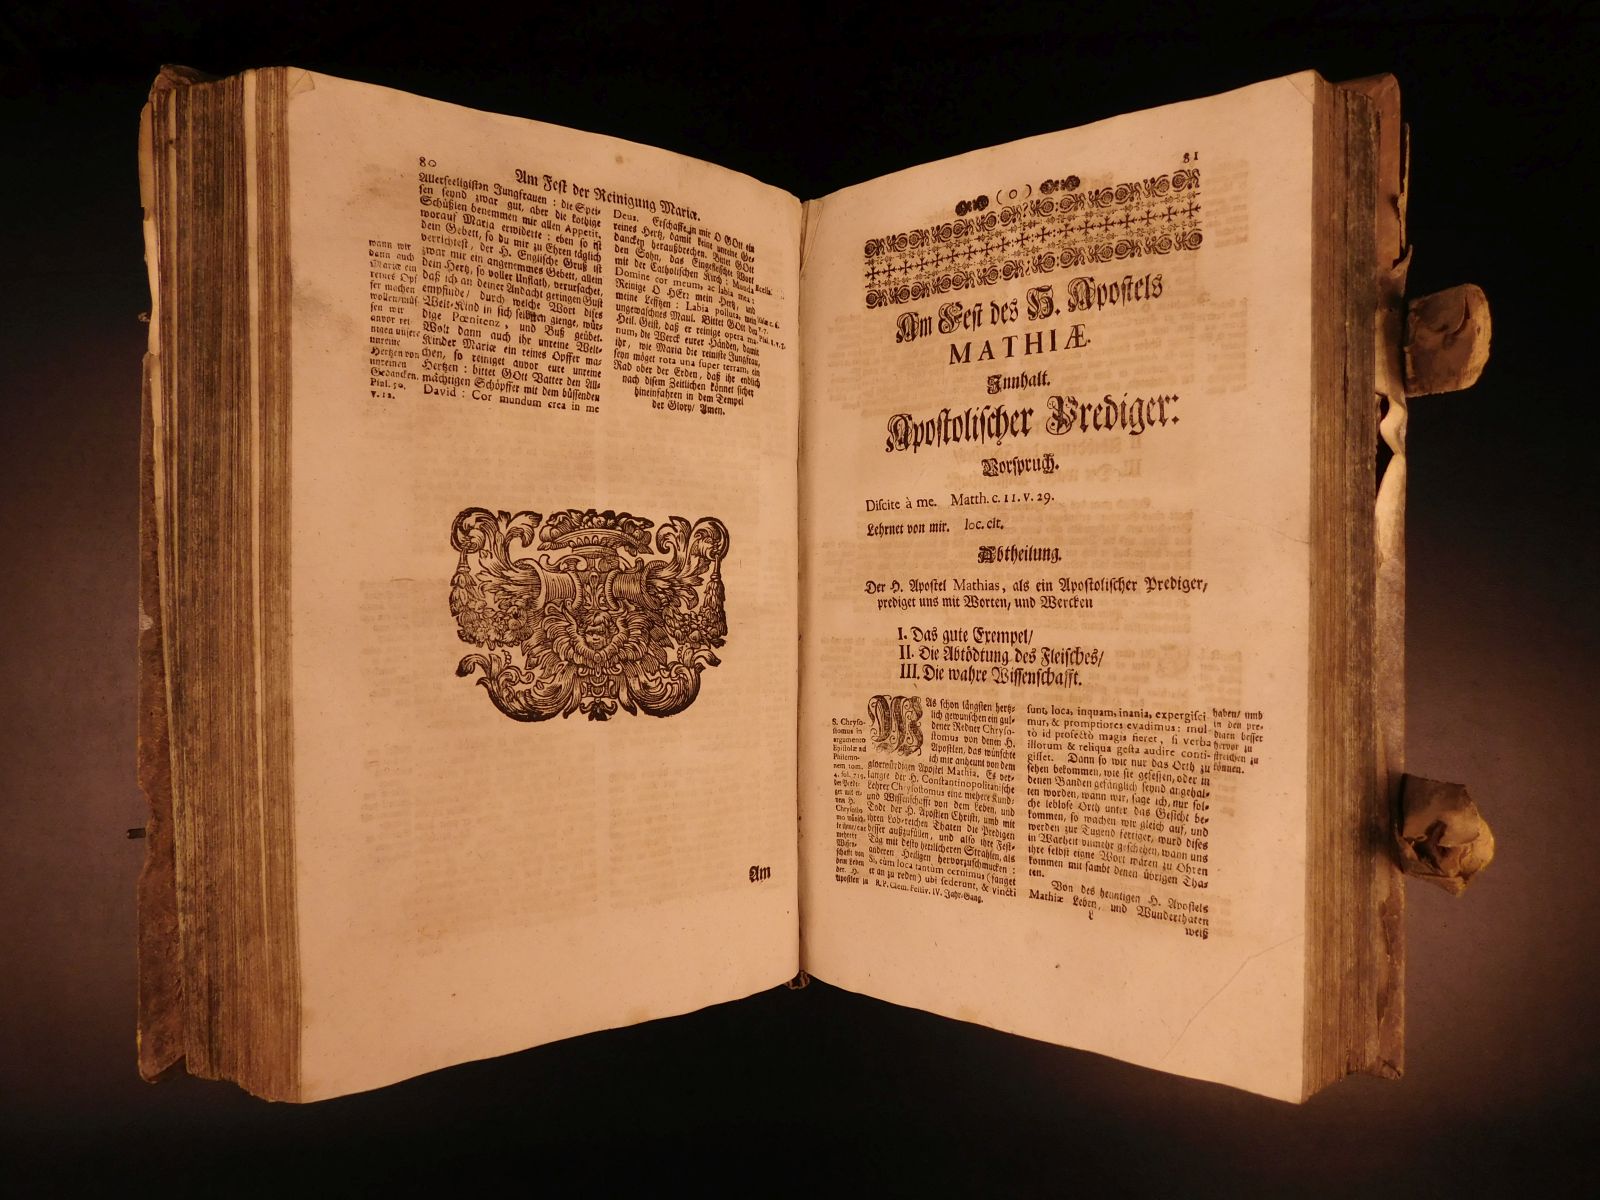 80
Am Fest der Reinigung Mariæ.
Allerseeligisten Jungfrauen : die Spei-
sen seynd zwar gut, aber die kothige
Schüßlen benemmen mir allen Appetit,
worauf Maria erwiderte : eben so ist
dein Gebett, so du mir zu Ehren täglich
verrichtest, der H. Englische Gruß ist
zwar mir ein angenemmes Gebett, allein
dein Hertz, so voller Unflath, verursachet,
daß ich an deiner Andacht geringen Gust
empfinde / durch welche Wort dises
Welt-Kind in sich selbsten gienge, wür-
dige Pœnitenz, und Buß geübet.
Wolt dann auch ihr unreine Welt-
Kinder Mariæ ein reines Opffer ma-
chen, so reiniget anvor eure unreine
Hertzen : bittet GOtt Vatter den All-
mächtigen Schöpffer mit dem büssenden
David : Cor mundum crea in me
wann wir
dann auch
Mariæ ein
reines Opf
fer machen
wollen / müs-
sen wir
anvor rei-
nigen unsere
unreine
Hertzen von
unreinen
Gedancken.
Psal. 50.
v. 12.
Deus. Erschaffe in mir O GOtt ein
reines Hertz, damit keine unreine Ge-
dancken heraußbrechen. Bittet GOtt
den Sohn, das Eingefleischte Wort
mit der Catholischen Kirch : Munda
Domine cor meum, ac labia mea :
Reinige O HErr mein Hertz, und
meine Lefftzen : Labia polluta, mein
ungewaschnes Maul. Bittet GOtt den
Heil. Geist, daß er reinige opera ma-
num, die Werck eurer Händen, damit
ihr, wie Maria die reiniste Jungfrau,
seyn möget rota una super terram, ein
Rad ober der Erden, daß ihr endlich
nach disem Zeitlichen könnet sicher
hineinfahren in dem Tempel
der Glory / Amen.
Am
81
( o )
Am Fest des H. Apostels
MATHIÆ.
Innhalt.
Apostolischer Prediger:
Vorspruch.
Discite à me. Matth. c. 11. v. 29.
Lehrnet von mir. loc. cit.
Abtheilung.
Der H. Apostel Mathias, als ein Apostolischer Prediger,
prediget uns mit Worten, und Wercken
I. Das gute Exempel/
II. Die Abtödtung des Fleisches/
III. Die wahre Wissenschafft.
S. Chryso-
stomus in
argumento
Epistolæ ad
Philemo-
nem tom.
4. fol. 719.
WAs schon längsten hertz-
lich gewunschen ein gul-
dener Redner Chryso-
stomus von denen H.
Apostlen, das wünschte
ich mir anheunt von dem
glorwürdigen Apostel Mathia. Es ver-
langte der H. Constantinopolitanische
Lehrer Chrysostomus eine mehere Kund-
und Wissenschafft von dem Leben, und
Todt der H. Apostlen Christi, umb mit
ihren Lob-reichen Thaten die Predigen
besser außzufüllen, und also ihre Fest-
Täg mit desto herrlicheren Strahlen, als
anderen Heiligen hervorzuschmucken :
Si, cùm loca tantùm cernimus (fanget
er an zu reden) ubi sederant, & vincti
R. P. Clem. Festiv. IV. Jahr-Gang.
sunt, loca, inquam, inania, expergisci-
mur, & promptiores evadimus : mul-
tò id profectò magis fieret, si verba
illorum & reliqua gesta audire conti-
gisset. Dann so wir nur das Orth zu
sehen bekommen, wie sie gesessen, oder in
denen Banden gefänglich seynd angehal-
ten worden, wann wir, sage ich, nur sol-
che leblose Orth unter das Gesicht be-
kommen, so wachen wir gleich auf, und
werden zur Tugend fertiger, wurd dises
in Warheit villmehr geschehen, wann uns
ihre selbst eigne Wort wären zu Ohren
kommen mit sambt denen übrigen Tha-
ten.
Von des heuntigen H. Apostels
Mathiæ Leben, und Wunderthaten
haben / umb
in den pre-
digen besser
hervor zu
streichen zu
können.
L
weiß